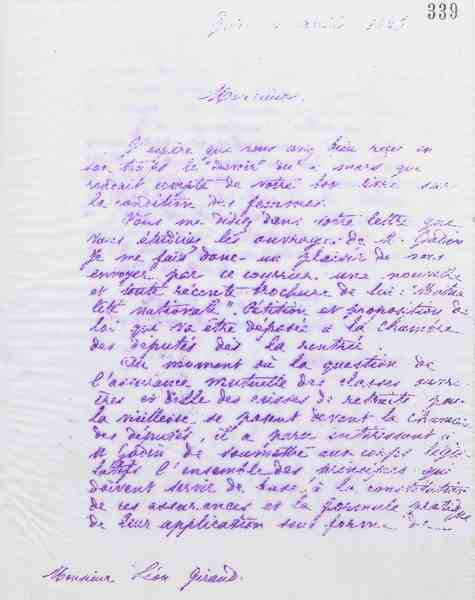 339
Monsieur.
J'espère que vous avez bien reçu en
son temps le "devoir" de mars qui
rendait compte de votre bon livre sur
la condition des femmes.
Vous me disiez dans votre lettre que
vous étudiiez les ouvrages de M. Godin
Je me fais donc un plaisir de vous
envoyer par ce courrier une nouvelle
et toute récente brochure de lui: "Mutua
lité nationale". Pétition et proposition de
loi qui va être déposée à la chambre
des députés dès la rentrée.
Au moment où la question de
l'assurance mutuelle des classes ouvri
ères et celle des caisses de retraite pour
la vieillesse se posent devant la chambre
des députés, il a paru intéressant à
M. Godin de soumettre aux corps légis
latifs l'ensemble des principes qui
doivent servir de base à la constitution
de ces assurances et la formule pratique
de leur application sous forme de
Monsieur Léon Giraud.